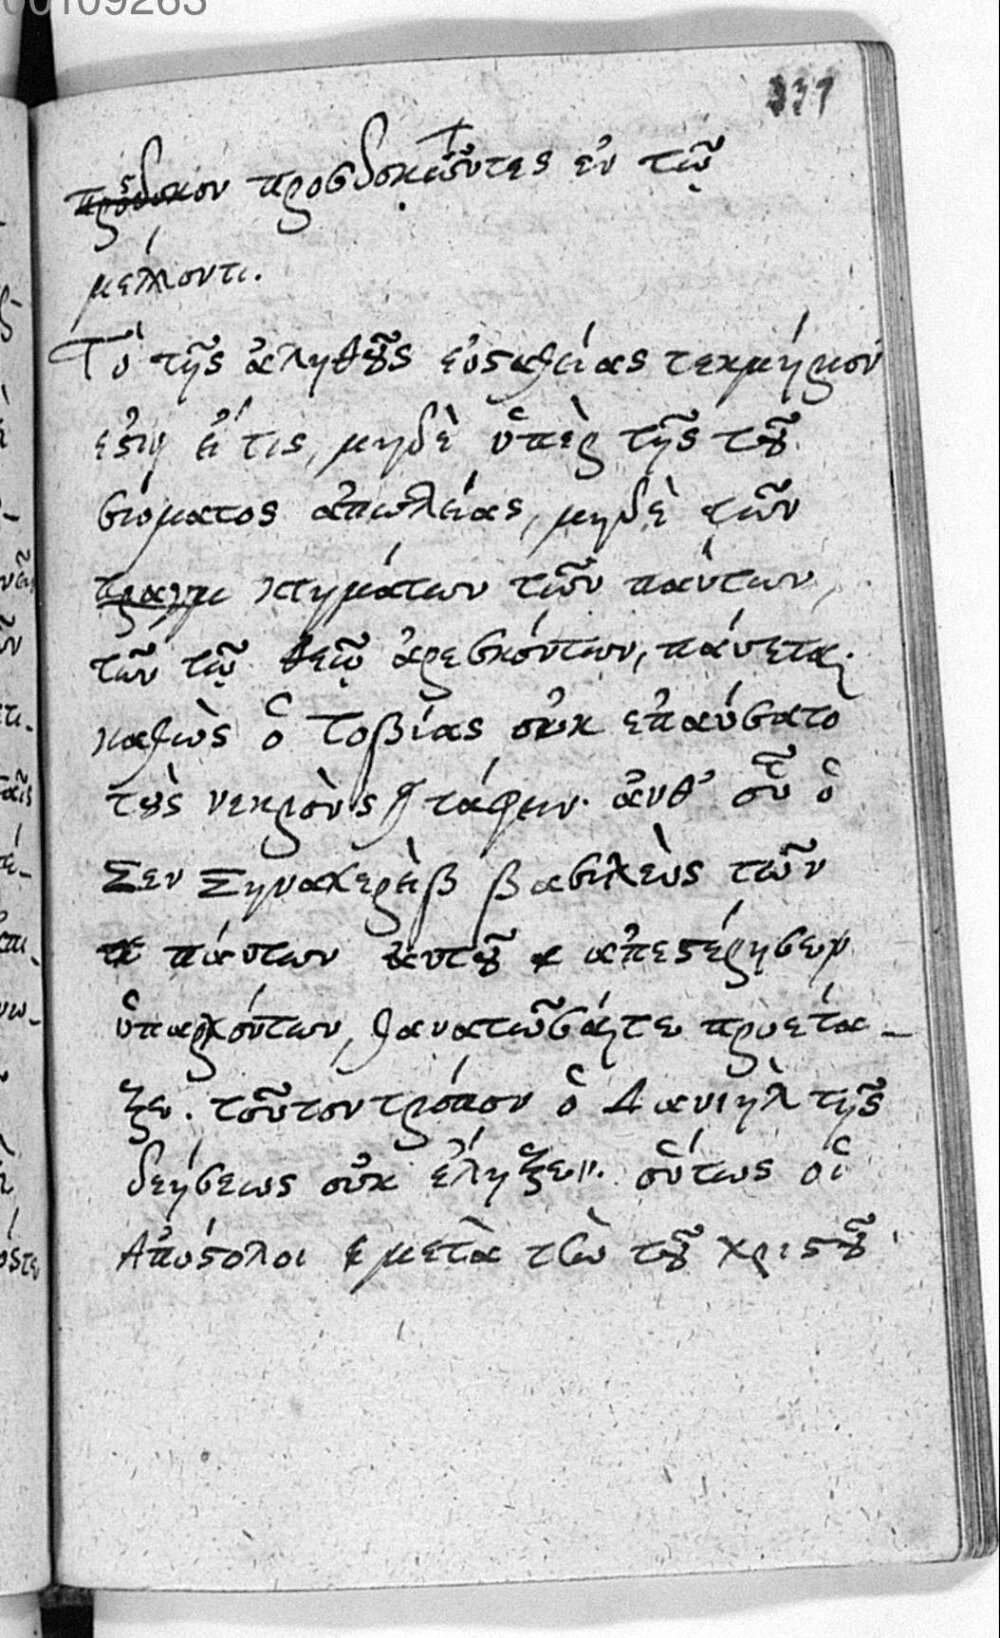 00109263
331
πρόσδοκον προσδοκῶντες ἐν τῷ
μέλλοντι.
Τὸ τῆς ἀληθοῦς εὐσταθείας τεκμήριόν
ἐστιν εἴ τις, μηδὲ ὑπὲρ τῆς τοῦ
σώματος ἀπωλείας, μηδὲ τῶν
πραγμ κτημάτων τῶν πάντων,
τῶν τῷ θεῷ ἀρεσκόντων, παύεται.
καθὼς ὁ Τοβίας οὐκ ἐπαύσατο
τοὺς νεκροὺς τάφειν. ἀνθ' οὗ ὁ
Σεν Σηναχερὴβ βασιλεὺς τῶν
πάντων αὐτοῦ ἀπεστέρησεν
ὑπαρχόντων, θανατῶσαί τε προέτα-
ξεν. τοῦτον τρόπον ὁ Δανιὴλ τῆς
δεήσεως οὐκ ἔληξεν. οὕτως οἱ
Ἀπόστολοι μετὰ τὴν τοῦ χριστοῦ